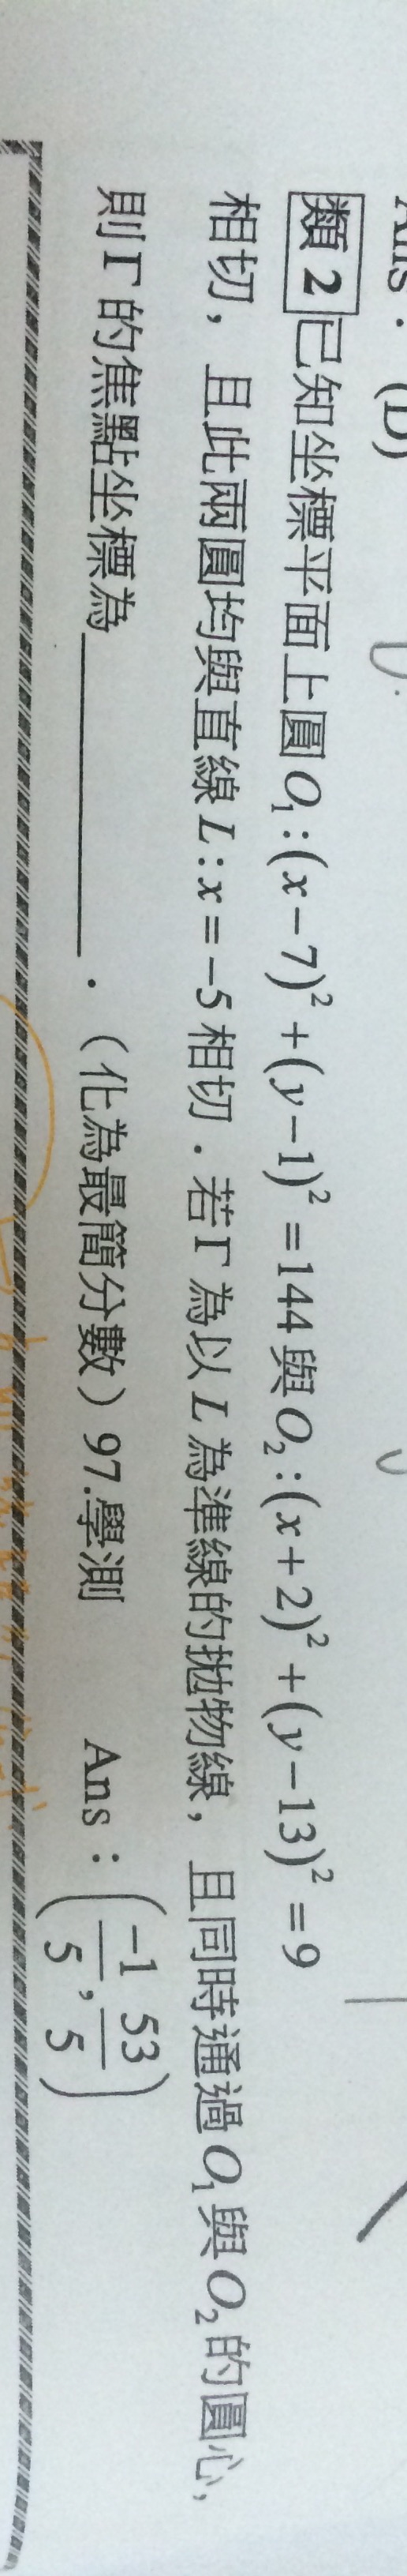 Ans. (D)
類2 已知坐標平面上圓 O₁:(x−7)²+(y−1)²=144 與 O₂:(x+2)²+(y−13)²=9
相切，且此兩圓均與直線 L:x=−5 相切．若Γ為以 L 為準線的拋物線，且同時通過 O₁ 與 O₂ 的圓心，
則Γ的焦點坐標為__________．（化為最簡分數）97.學測 Ans：(-1/5, 53/5)